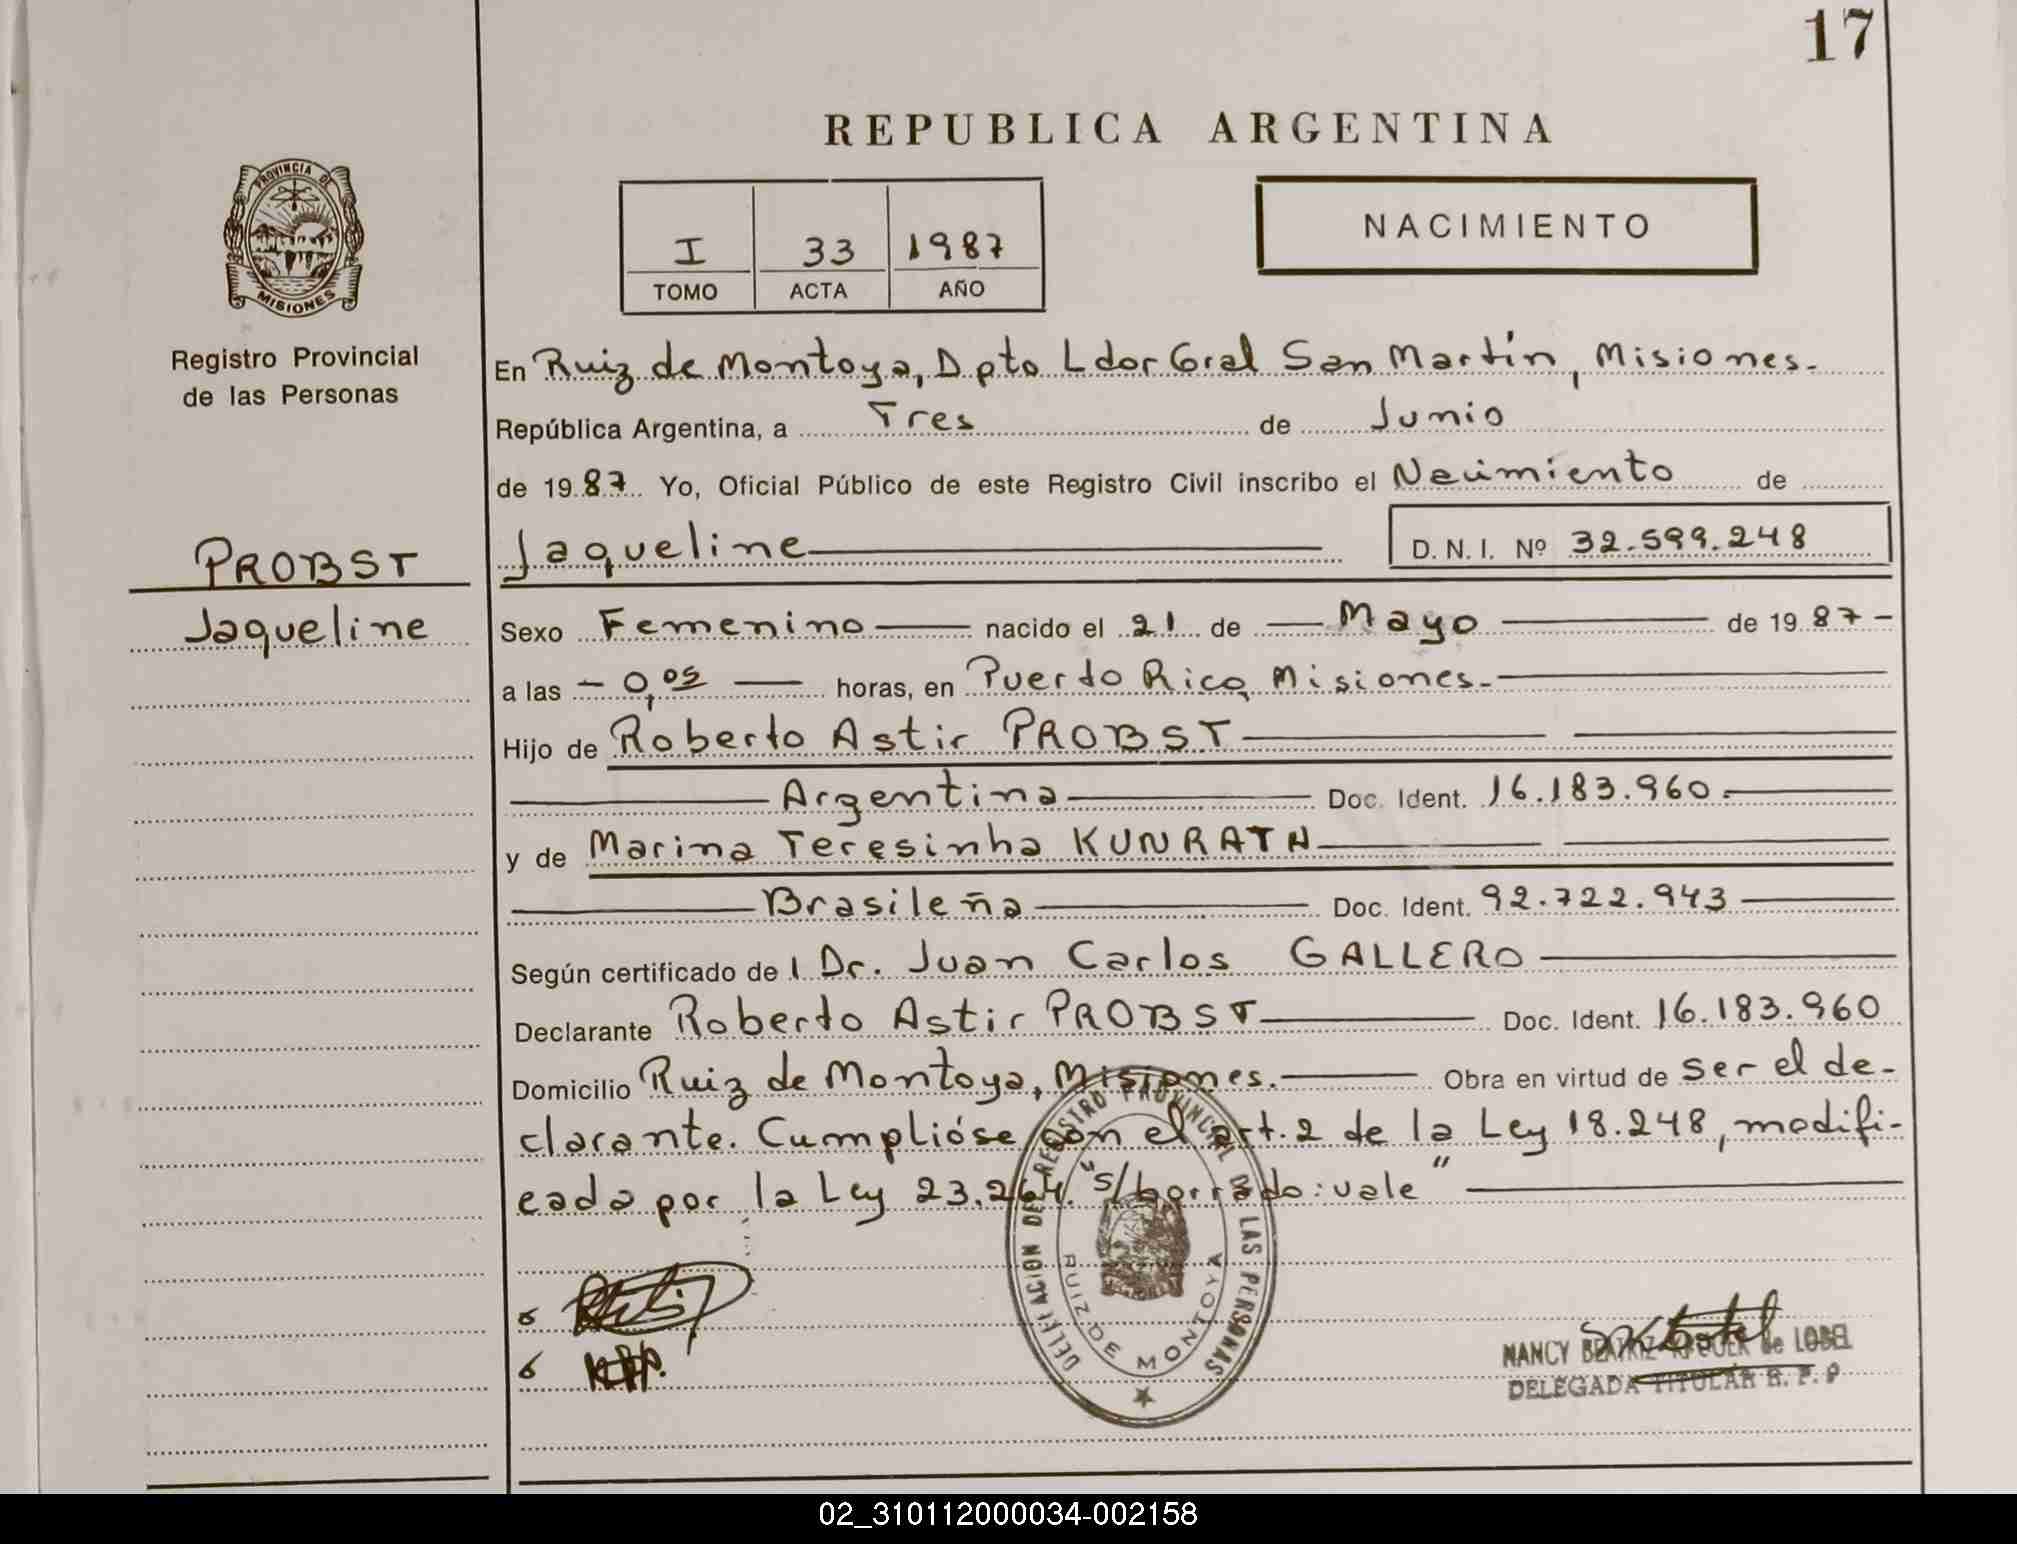 17
REPUBLICA ARGENTINA
PROVINCIA DE
MISIONES
Registro Provincial
de las Personas
I 33 1987
TOMO ACTA AÑO
NACIMIENTO
En Ruiz de Montoya, Dpto Ldor Gral San Martín, Misiones.
República Argentina, a Tres de Junio
de 1987 Yo, Oficial Público de este Registro Civil inscribo el Nacimiento de
PROBST
Jaqueline
Jaqueline D. N. I. Nº 32.599.248
Sexo Femenino nacido el 21 de Mayo de 1987
a las 0,05 horas, en Puerto Rico, Misiones.
Hijo de Roberto Astir PROBST
Argentina Doc. Ident. 16.183.960.
y de Marina Teresinha KUNRATH
Brasileña Doc. Ident. 92.722.943
Según certificado de l Dr. Juan Carlos GALLERO
Declarante Roberto Astir PROBST Doc. Ident. 16.183.960
Domicilio Ruiz de Montoya, Misiones. Obra en virtud de ser el de-
clarante. Cumplióse con el art. 2 de la Ley 18.248, modifi-
cada por la Ley 23.264. "s/borrado: vale"
DELEGACION DEL REGISTRO PROVINCIAL DE LAS PERSONAS
RUIZ DE MONTOYA
NANCY BEATRIZ de LOBEL
DELEGADA TITULAR R. P. P
02_310112000034-002158